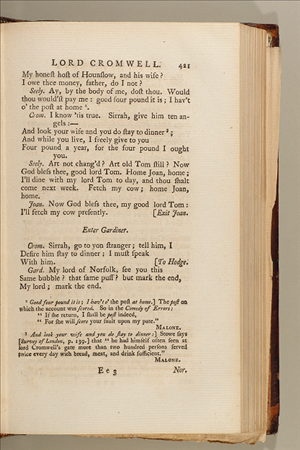 LORD CROMWELL. 421
My honeſt hoſt of Hounſlow, and his wife?
I owe thee money, father, do I not?
Seely. Ay, by the body of me, doſt thou. Would
thou would'ſt pay me: good four pound it is; I hav't
o' the poſt at home ¹.
Crom. I know 'tis true. Sirrah, give him ten an-
gels:—
And look your wife and you do ſtay to dinner ²;
And while you live, I freely give to you
Four pound a year, for the four pound I ought
you.
Seely. Art not chang'd? Art old Tom ſtill? Now
God bleſs thee, good lord Tom. Home Joan, home;
I'll dine with my lord Tom to day, and thou ſhalt
come next week. Fetch my cow; home Joan,
home.
Joan. Now God bleſs thee, my good lord Tom:
I'll fetch my cow preſently. [Exit Joan.
Enter Gardiner.
Crom. Sirrah, go to yon ſtranger; tell him, I
Deſire him ſtay to dinner: I muſt ſpeak
With him. [To Hodge.
Gard. My lord of Norfolk, ſee you this
Same bubble? that ſame puff? but mark the end,
My lord; mark the end.
¹ Good four pound it is; I hav't o' the poſt at home.] The poſt on
which the account was ſcored. So in the Comedy of Errors:
" If the return, I ſhall be poſt indeed,
" For ſhe will ſcore your fault upon my pate."
MALONE.
² And look your wife and you do ſtay to dinner:] Stowe ſays
[Survey of London, p. 139.] that " he had himſelf often ſeen at
lord Cromwell's gate more than two hundred perſons ſerved
twice every day with bread, meat, and drink ſufficient."
MALONE.
E e 3 Nor.